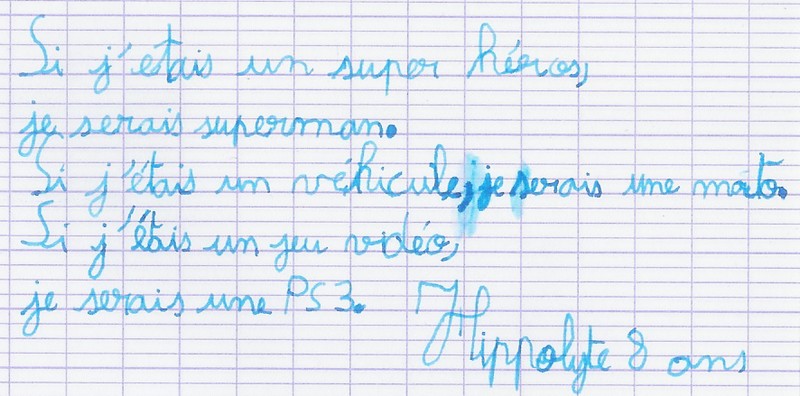 Si j'etais un super héros,
je serais superman.
Si j'étais un véhicule, je serais une moto.
Si j'étais un jeu vidéo,
je serais une PS3.
Hippolyte 8 ans